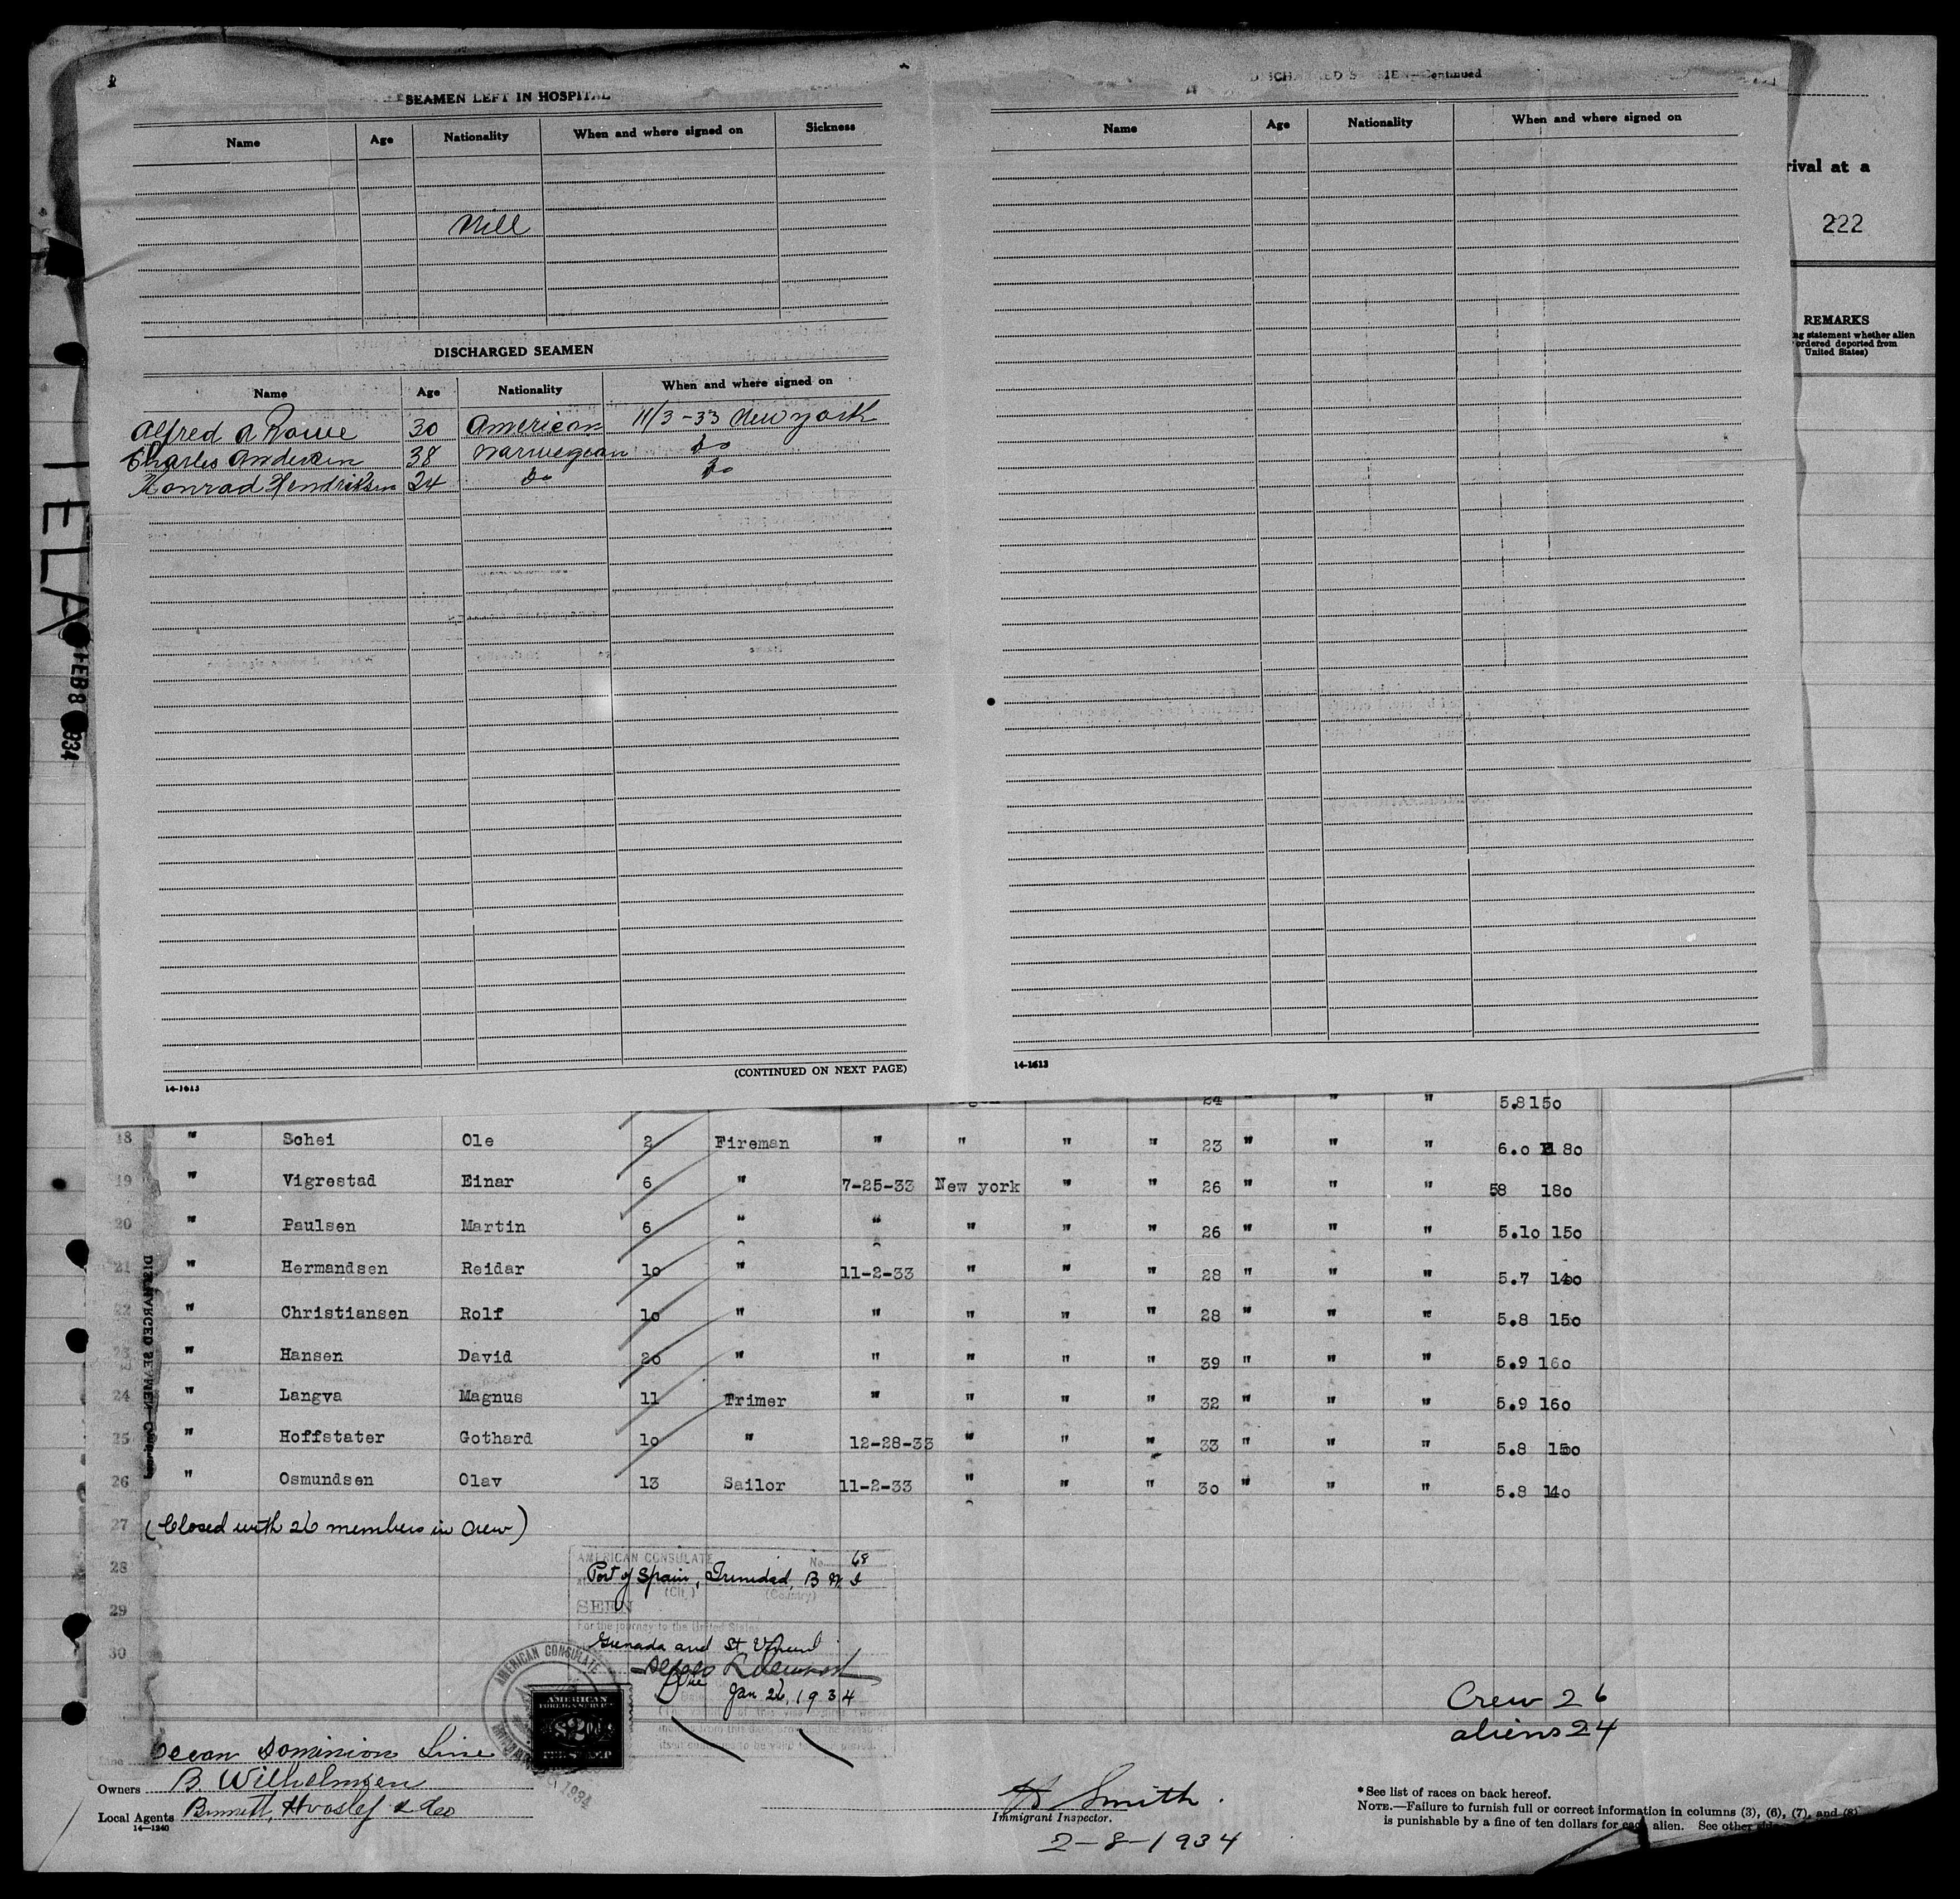 SEAMEN LEFT IN HOSPITAL
Name Age Nationality When and where signed on Sickness
Nill
DISCHARGED SEAMEN
Name Age Nationality When and where signed on
Alfred A Rowe 30 American 11/3-33 New york
Charles Andersen 38 Norwegean Do
Konrad Hendriksen 24 Do Do
(CONTINUED ON NEXT PAGE)
14-1613
DISCHARGED SEAMEN—Continued
Name Age Nationality When and where signed on
14-1613
rival at a
222
REMARKS
ng statement whether alien
ordered deported from
United States)
TELA
FEB 8 1934
24 " " " 5.8 150
18 " Schei Ole 2 Fireman " " " " 23 " " " 6.0 180
19 " Vigrestad Einar 6 " 7-25-33 New york " " 26 " " " 58 180
20 " Paulsen Martin 6 " " " " " 26 " " " 5.10 150
21 " Hermandsen Reidar 10 " 11-2-33 " " " 28 " " " 5.7 140
22 " Christiansen Rolf 10 " " " " " 28 " " " 5.8 150
23 " Hansen David 20 " " " " " 39 " " " 5.9 160
24 " Langva Magnus 11 Trimer " " " " 32 " " " 5.9 160
25 " Hoffstater Gothard 10 " 12-28-33 " " " 33 " " " 5.8 150
26 " Osmundsen Olav 13 Sailor 11-2-33 " " " 30 " " " 5.8 140
27 (Closed with 26 members in Crew)
28
29
30
DISCHARGED SEAMEN—Continued
AMERICAN CONSULATE No. 68
Port of Spain, Trinidad, B W I
(City) (Country)
SEEN
For the journey to the United States
Grenada and St Vincent
Jan 26, 1934
AMERICAN CONSULATE
AMERICAN
FOREIGN SERVICE
$2.00
FEE STAMP
1934
Crew 26
aliens 24
Line Ocean Dominion Line
Owners B. Wilhelmsen
Local Agents Bennett, Hvoslef & Co
14-1240
H Smith.
Immigrant Inspector.
2-8-1934
*See list of races on back hereof.
NOTE.—Failure to furnish full or correct information in columns (3), (6), (7), and (8)
is punishable by a fine of ten dollars for each alien. See other side